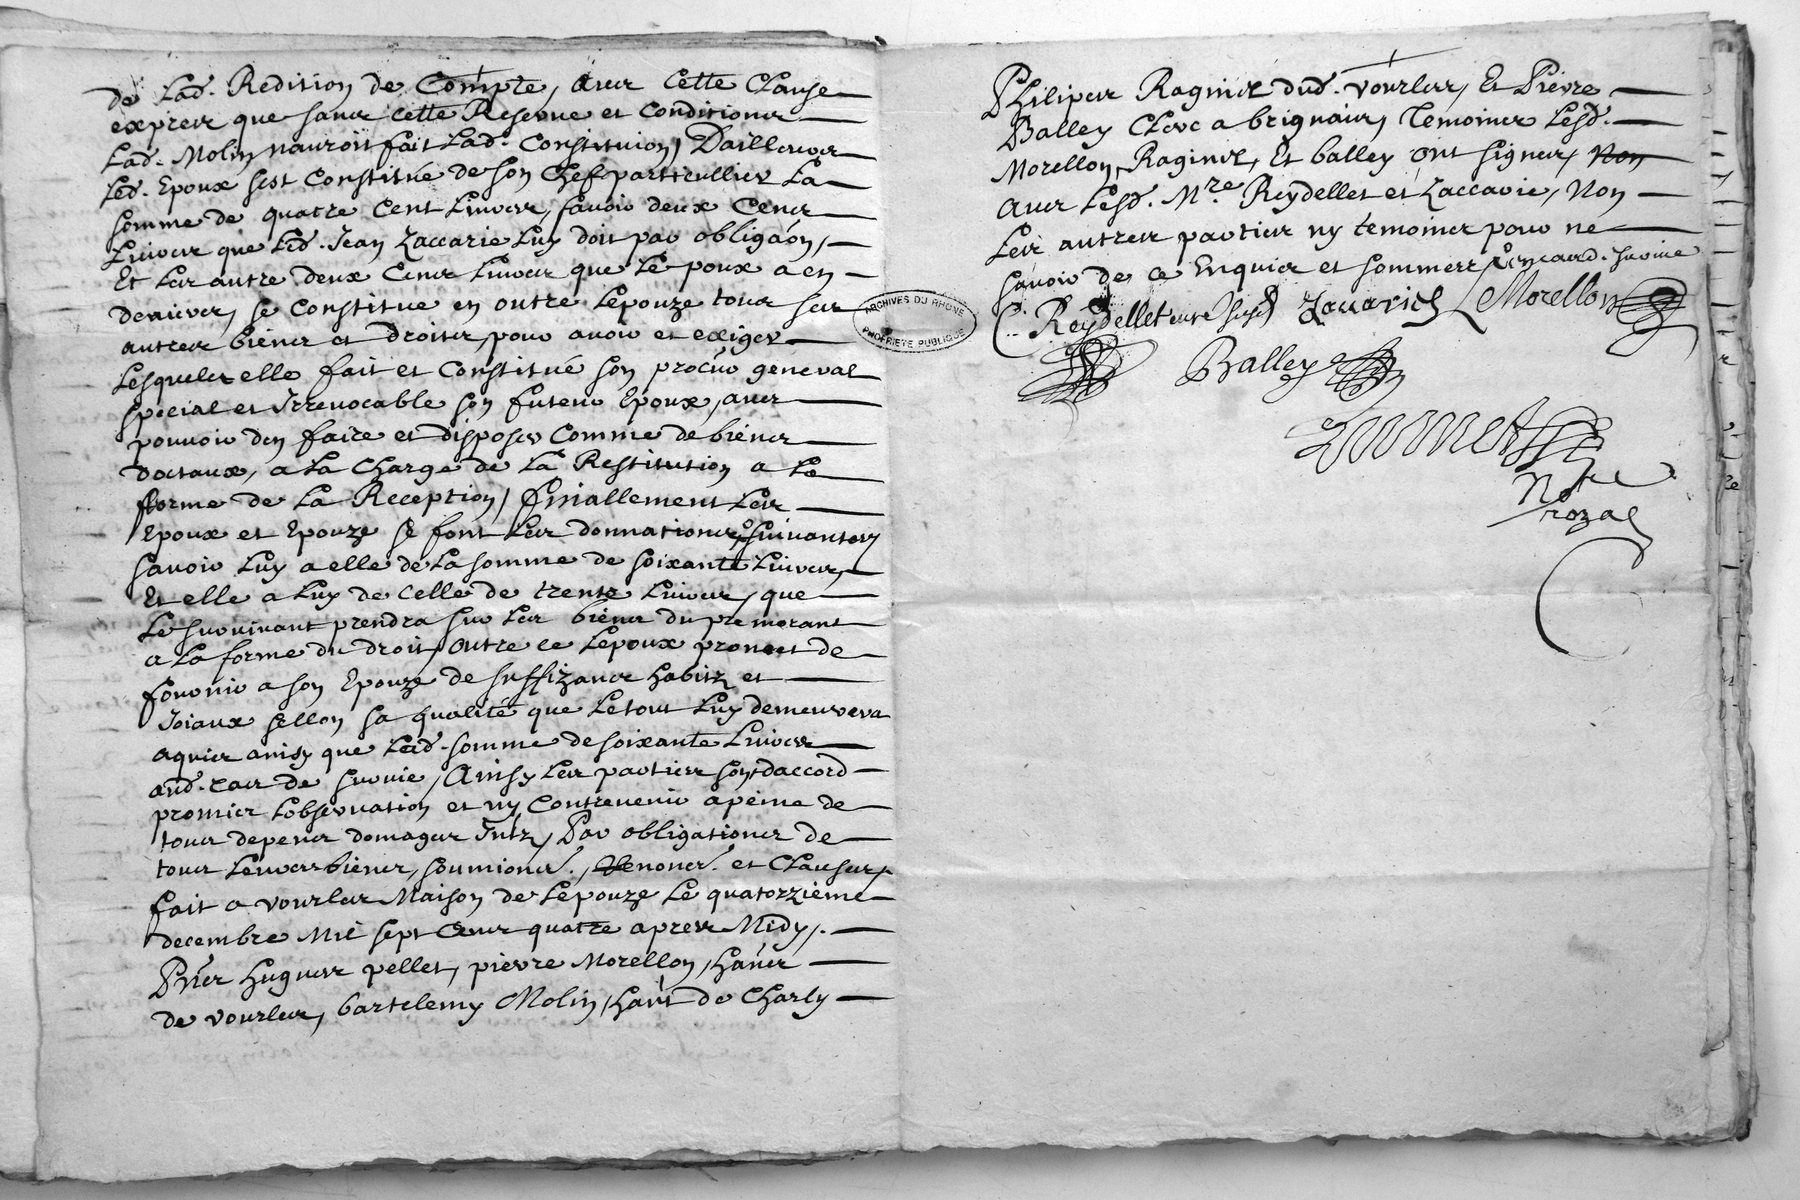 de Lad. Redition de Compte, avec Cette Clause
expresse que sans cette Reserve et Conditions
Lad. Molin nauroit fait Lad. Constituion, Dailleurs
Led. Epoux sest Constitué de son Chef particullier La
somme de quatre Cent Livres, savoir deux Cens
Livres que Led. Jean Zaccarie Luy doit par obligaôn,
Et Les autre deux Cens Livres que Lepoux a en
deniers, se Constitue en outre Lepouze tous ses
autres biens et droits, pour avoir et exiger
Lesquels elle fait et Constitué son procur general
special et Irrevocable son futeur Epoux, avec
pouvoir den faire et disposer Comme de biens
dotaux, a La Charge de La Restitution a La
forme de La Reception, finallement Les
Epoux et Epouze se font Les donnations suivantes
savoir Luy a elle de La somme de soixante Livres,
Et elle a Luy de Celle de trente Livres, que
Le survivant prendra sur Les biens du premorant
a La forme du droit, outre ce Lepoux promet de
fournir a son Epouze de suffizance habitz et
Joiaux sellon sa qualité que Le tout Luy demeurera
aquis ainsy que Lad. somme de soixante Livres
aud. cas de survie, Ainsy Les parties sont daccord
promis Lobservation et ny Contrevenir apeine de
tous depens domages Intz, Par obligations de
tous Leurs biens, soumions., Renons. et Clauses,
fait a vourles Maison de Lepouze Le quatorzieme
decembre Mil sept Cens quatre apres Midy,.
Pns hugues pellet, pierre Morellon, hans
de vourles, bartelemy Molin, hant de Charly
Philipes Raginel dud. vourles, Et Pierre
Balley Clerc a brignais, Temoins Lesd.
Morellon, Raginel, Et balley ont signes, Non
avec Lesd. Mre Reydellet et Zaccarie, Non
Les autres parties ny temoins pour ne
savoir de ce Enquis et sommes
C. Reydellet Zaccarie LeMorellon
Balley
ARCHIVES DU RHONE
PROPRIETE PUBLIQUE
Nore
rozal